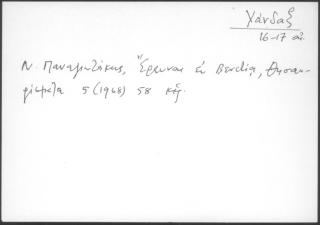 Χάνδαξ
16-17 αι.
Ν. Παναγιωτάκης, Ἔρευναι ἐν Βενετίᾳ, Θησαυ-
ρίσματα 5 (1968) 58 κἑξ.